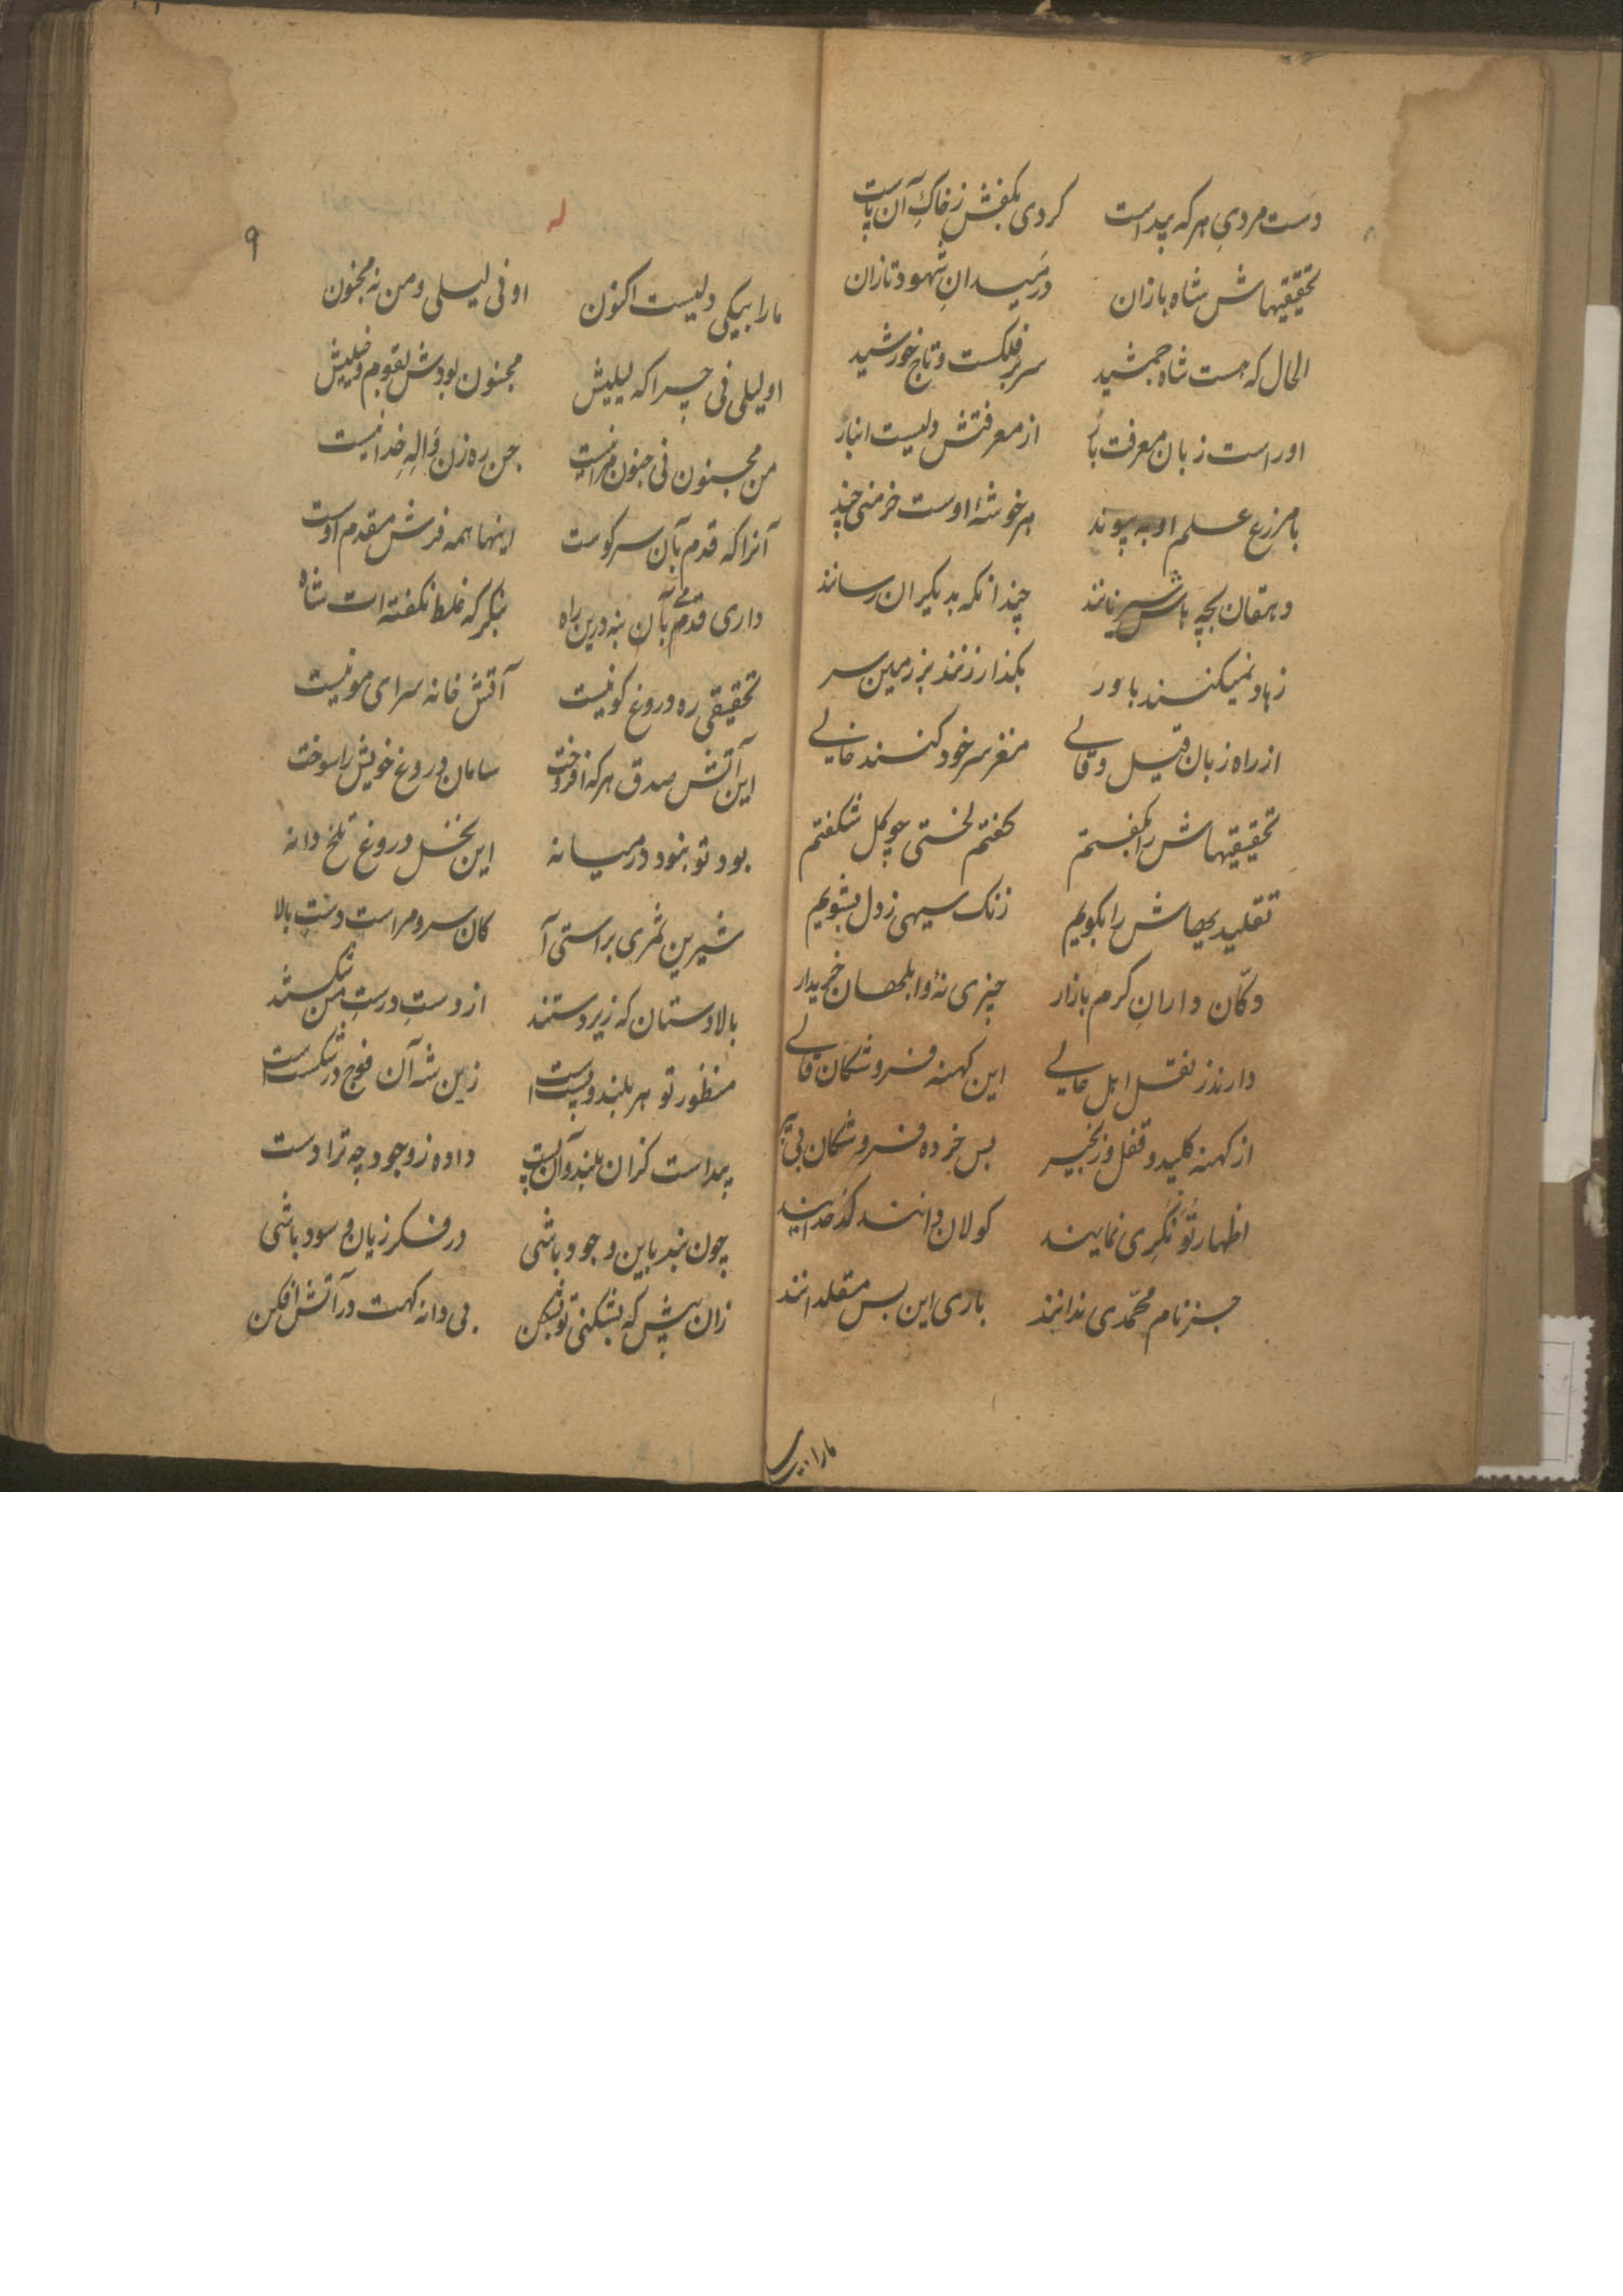 دست مردی هر که پیداست کردی بکفش ز خاک آن پاست
تحقیقیهاش شاه بازان در میدان شهود تازان
الحال که هست شاه جمشید سر بر فلکست و تاج خورشید
او راست زبان معرفت از معرفتش دلیست انبار
با مزرع علم او به پیوند هر خوشهٔ اوست خرمنی چند
دهقان بچه چندانکه بدیکران رسانند
زهاد نمیکنند باور بکذار زنند بر زمین سر
از راه زبان قیل و قالے مغز سر خود کنند خالے
تحقیقیهاش را بگفتم گفتم لختی چو گل شکفتم
تقلیدیهاش را بکویم زنک سیهی ز دل بشویم
دکّان داران کرم بازار چیزی نه و ابلهان خریدار
دارند ز نقل اهل حالے این کهنه فروشکان قالے
از کهنه کلید و قفل و زنجیر بس خرده فروشکان بی
اظهار تونکری نمایند کولان دانند
جز نام محمّدی ندانند باری این بس مقلدانند
۹
ما را بیکی دلیست اکنون او نی لیلی و من نه مجنون
او لیلی نی چرا که لیلیش مجنون بودش بقوم و خیلیش
من مجنون نی جنون مرا نیست جن ره زن واله خدا نیست
آنرا که قدم بآن سر کوست اینها همه فرش مقدم اوست
داری قدمے بآن بنه درین راه بنکر که غلط نکفته است شاه
تحقیقی ره دروغ کو نیست آتش خانه سرای مو نیست
این آتش صدق هر که افروخت سامان دروغ خویش را سوخت
بود تو نبود در میانه این نخل دروغ تلخ دانه
شیرین ثمری براستی آ کان سرو مراست دست بالا
بالادستان که زیر دستند از دست درست من شکستند
منظور تو هر بلند و پستست زین شه آن فوج در شکستست
پیداست کزان بلند و آن پست داده ز وجود چه ترا دست
چون بند باین وجود باشی در فکر زیان و سود باشی
زان پیش که بشکنی تو بشکن بی دانه کهت در آتش افکن